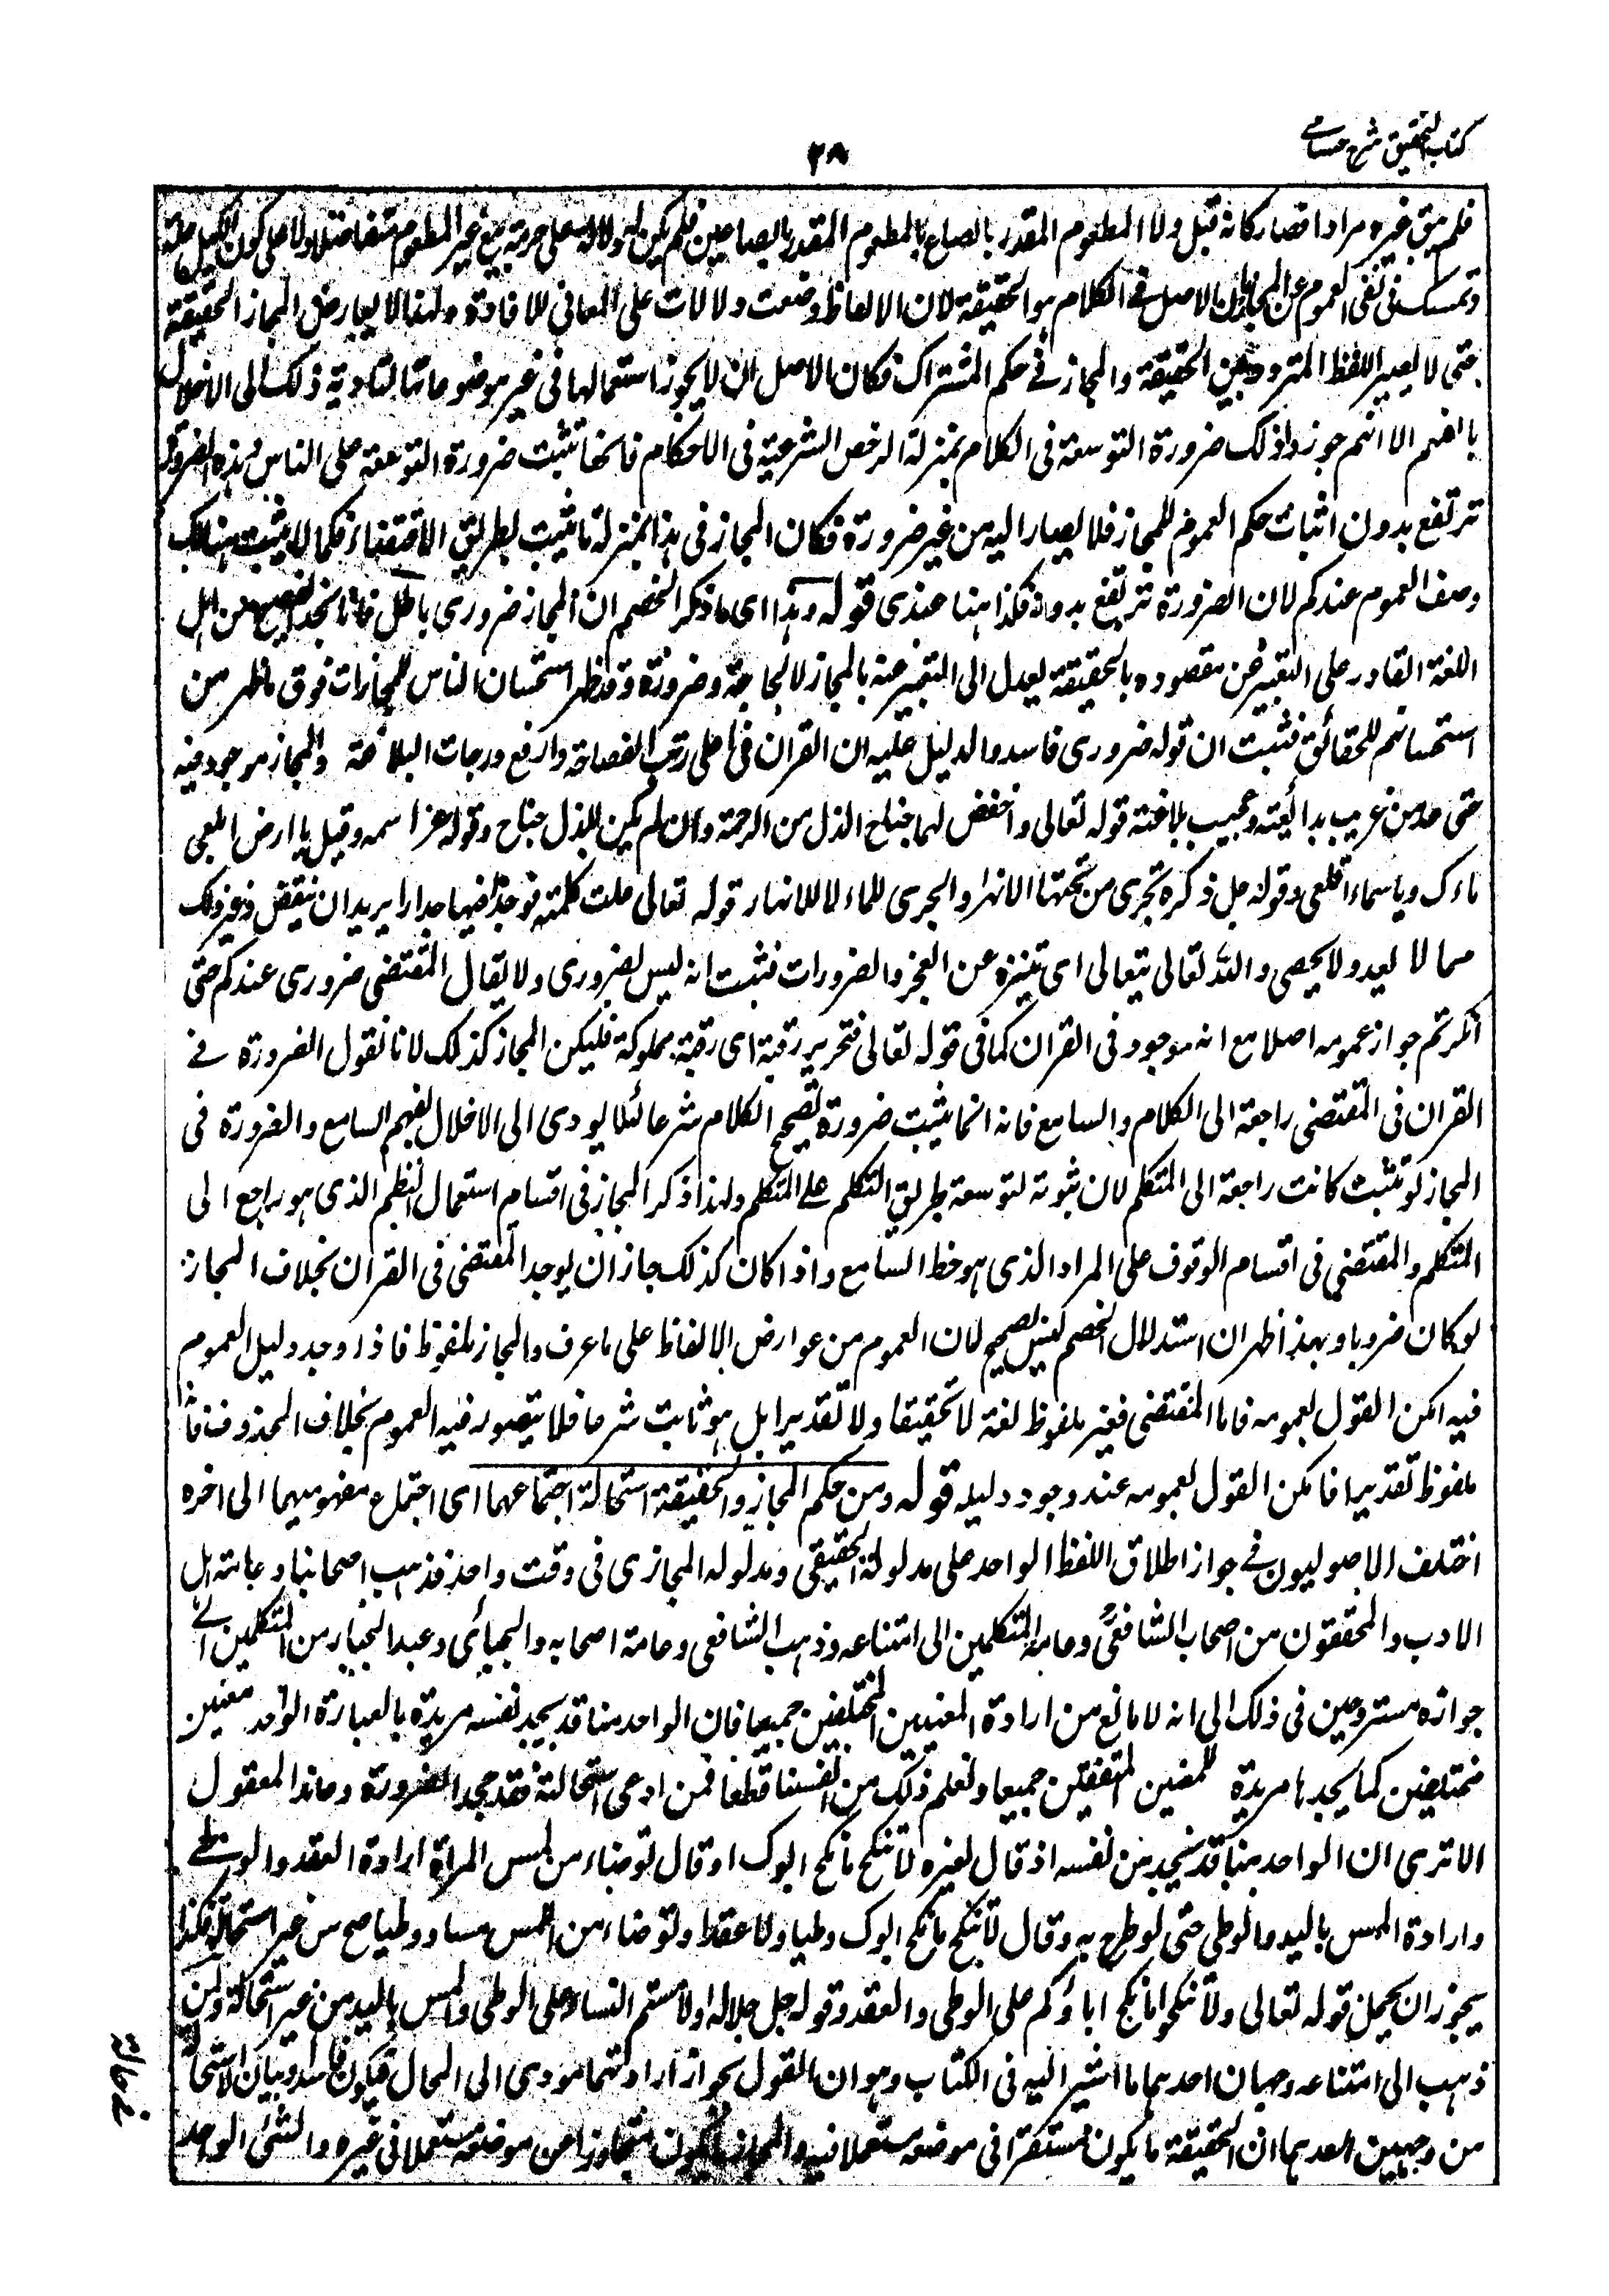 كتاب التحقيق شرح حسامي
٢٨
فلم يبق غيره مرادا فصار كانه قيل ولا المطعوم المقدر بالصاع بالمطعوم المقدر بالصاعين فلم يكن له دلالة على حرمة بيع غير المطعوم متفاضلا ولا على كون الكيل علة
وتمسك فى نفى العموم عن المجاز بان الاصل فى الكلام هو الحقيقة لان الالفاظ وضعت دلالات على المعاني للافادة ولهذا لا يعارض المجاز الحقيقة
حتى لا يصير اللفظ المتردد بين الحقيقة والمجاز في حكم المشترك فكان الاصل ان لا يجوز استعمالها فى غير موضوعاتها لتادية ذلك الى الاخلال
بالفهم الا انهم جوزوا ذلك ضرورة التوسعة فى الكلام بمنزلة الرخص الشرعية فى الاحكام فانها تثبت ضرورة التوسعة على الناس وهذه الضرورة
ترتفع بدون اثبات حكم العموم للمجاز فلا يصار اليه من غير ضرورة فكان المجاز فى هذا بمنزلة ما ثبت بطريق الاقتضاء فكما لا يثبت هنالك
وصف العموم عندكم لان الضرورة ترتفع بدونه فكذا هنا عندى قوله وهذا اى ما ذكر الخصم ان المجاز ضرورى باطل فانا نجد الفصيح من اهل
اللغة القادر على التعبير عن مقصوده بالحقيقة يعدل الى التعبير عنه بالمجاز لا لحاجة وضرورة وقد ظهر استحسان الناس للمجازات فوق ما ظهر من
استحسانهم للحقائق فثبت ان قوله ضرورى فاسد والدليل عليه ان القران فى اعلى رتب الفصاحة وارفع درجات البلاغة والمجاز موجود فيه
حتى عد من غريب بدائعه وعجيب بلاغته قوله تعالى واخفض لهما جناح الذل من الرحمة وان لم يكن للذل جناح وقوله عز اسمه وقيل يا ارض ابلعى
ماءك ويا سماء اقلعى وقوله جل ذكره تجرى من تحتها الانهار والجرى للماء لا للانهار قوله تعالى علت كلمته فوجدا فيها جدارا يريد ان ينقض وغير ذلك
مما لا يعد ولا يحصى والله تعالى يتعالى اى يتنزه عن العجز والضرورات فثبت انه ليس بضرورى ولا يقال المقتضى ضرورى عندكم حتى
انكرتم جواز عمومه اصلا مع انه موجود فى القران كما فى قوله تعالى فتحرير رقبة اى رقبة مملوكة فليكن المجاز كذلك لانا نقول الضرورة فے
القران فى المقتضى راجعة الى الكلام والسامع فانه انما يثبت ضرورة تصحيح الكلام شرعا لئلا يودى الى الاخلال بفهم السامع والضرورة فى
المجاز لو تثبت كانت راجعة الى المتكلم لان ثبوته لتوسعة طريق التكلم على المتكلم ولهذا ذكر المجاز فى اقسام استعمال النظم الذى هو راجع الى
المتكلم والمقتضى فى اقسام الوقوف على المراد الذى هو حظ السامع واذا كان كذلك جاز ان يوجد المقتضى فى القران بخلاف المجاز
لو كان ضروبا وبهذا ظهر ان استدلال الخصم ليس بصحيح لان العموم من عوارض الالفاظ على ما عرف والمجاز ملفوظ فاذا وجد دليل العموم
فيه امكن القول بعمومه فاما المقتضى فغير ملفوظ لغة لا تحقيقا ولا تقديرا بل هو ثابت شرعا فلا يتصور فيه العموم بخلاف المحذوف فانه
ملفوظ تقديرا فامكن القول بعمومه عند وجود دليله قوله ومن حكم المجاز والحقيقة استحالة اجتماعهما اى اجتماع مفهوميهما الى اخره
اختلف الاصوليون فے جواز اطلاق اللفظ الواحد على مدلوله الحقيقى ومدلوله المجازى فى وقت واحد فذهب اصحابنا وعامة اهل
الادب والمحققون من اصحاب الشافعى وعامة المتكلمين الى امتناعه وذهب الشافعى وعامة اصحابه والجبائى وعبد الجبار من المتكلمين الے
جوازه مستروحين فى ذلك الى انه لا مانع من ارادة المعنيين المختلفين جميعا فان الواحد منا قد يجد نفسه مريدة بالعبارة الواحد معنيين
مختلفين كما يجدها مريدة للمعنيين المتفقين جميعا ونعلم ذلك من انفسنا قطعا فمن ادعى استحالته فقد جحد الضرورة وعاند المعقول
الا ترى ان الواحد منا قد يجد من نفسه اذ قال لغيره لا تنكح ما نكح ابوك او قال توضاء من لمس المراة ارادة العقد والوطے
وارادة المس باليد والوطى حتى لو صرح به وقال لا تنكح ما نكح ابوك وطيا ولا عقدا وتوضاء من اللمس مسا ووطيا صح من غير استحالة فكذا
يجوز ان يحمل قوله تعالى ولا تنكحوا ما نكح اباؤكم على الوطى والعقد وقوله جل جلاله او لامستم النساء على الوطى والمس باليد من غير استحالة ولمن
ذهب الى امتناعه وجهان احدهما ما اشير اليه فى الكتاب وهو ان القول بجواز ارادتهما مودى الى المحال فيكون فاسدا وبيان الاستحالة
من وجهين احدهما ان الحقيقة ما يكون مستقرا فى موضعه مستعملا فيه والمجاز ما يكون متجاوزا عن موضعه مستعملا فى غيره والشئ الواحد